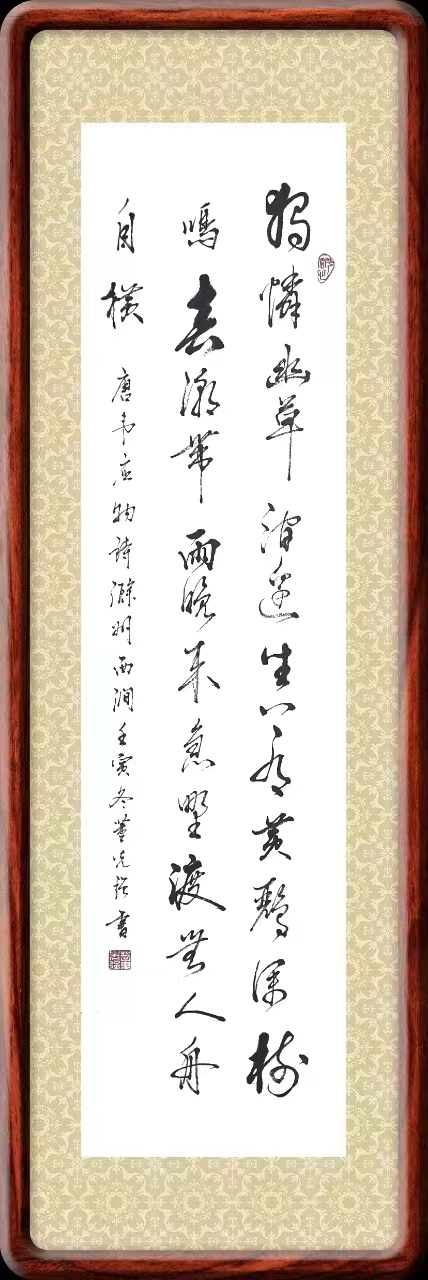 獨憐幽草澗邊生上有黄鸝深樹
鳴春潮帶雨晚来急野渡無人舟
自横
唐韦应物詩滁州西澗壬寅冬董書